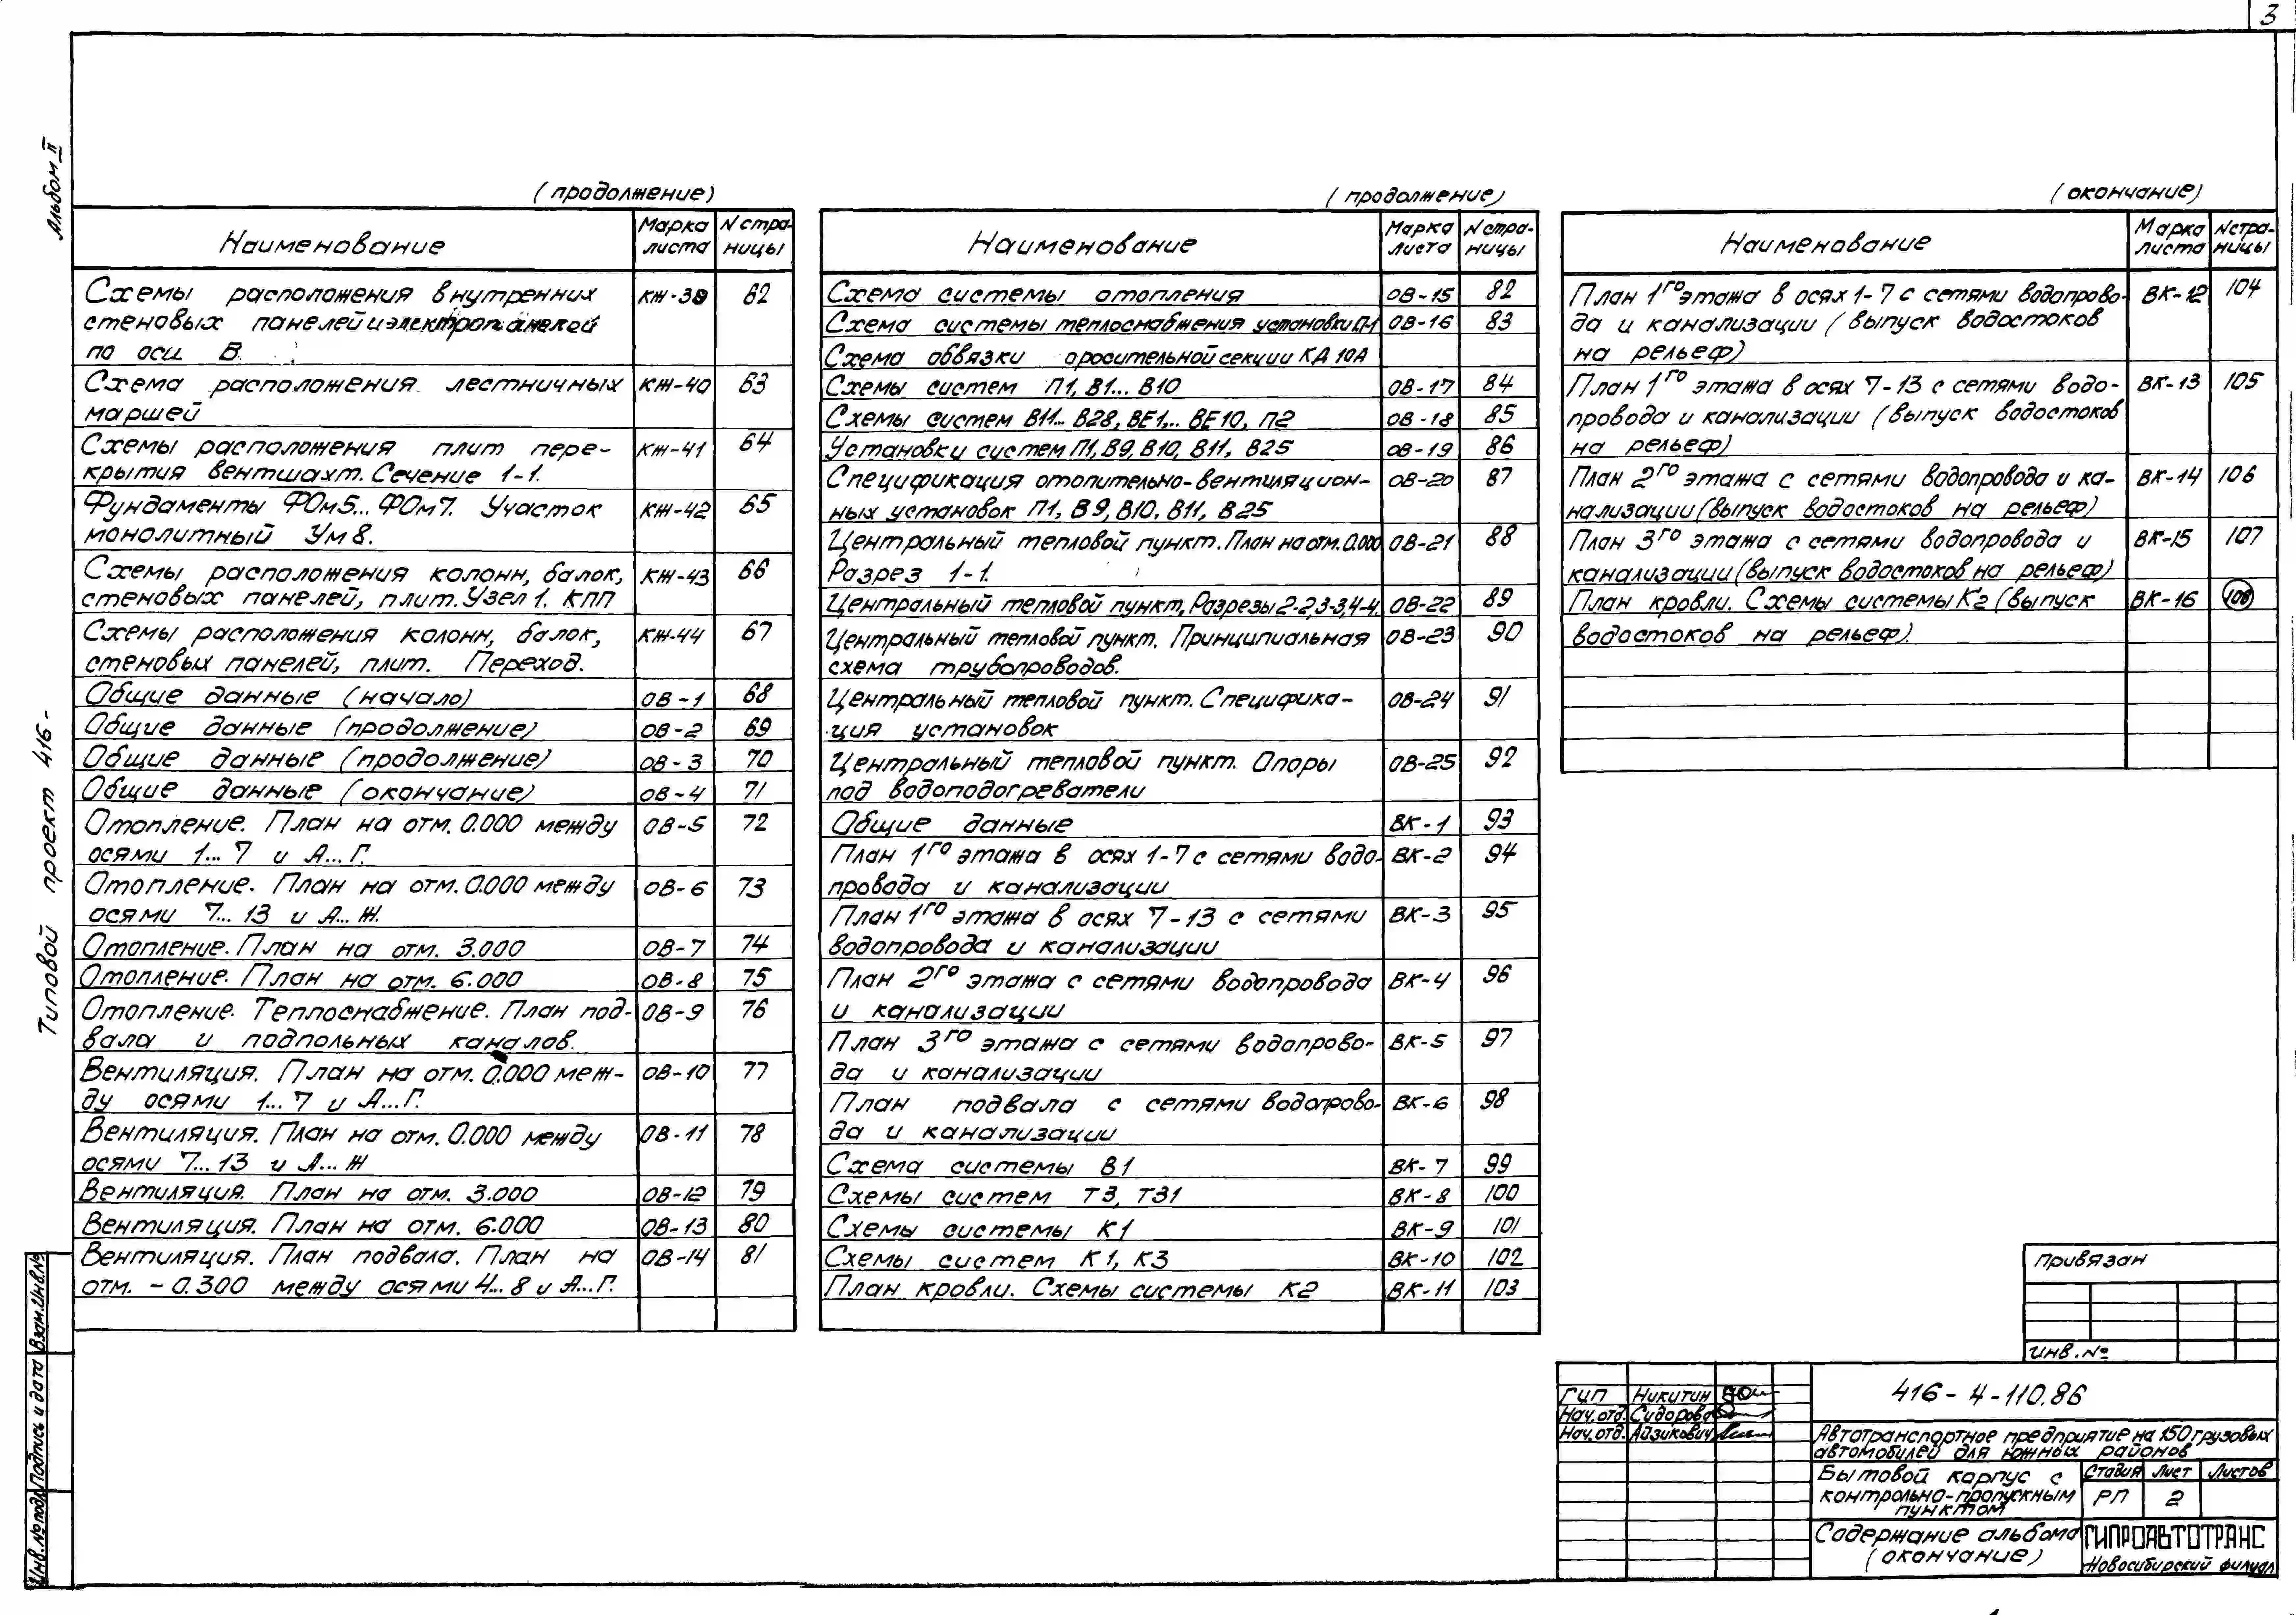 3
Альбом II
Типовой проект 416-
(продолжение)
Наименование Марка листа N страницы
Схемы расположения внутренних КЖ-39 62
стеновых панелей и электропанелей
по оси В.
Схема расположения лестничных КЖ-40 63
маршей
Схемы расположения плит пере- КЖ-41 64
крытия вентшахт. Сечение 1-1.
Фундаменты ФОм5... ФОм7. Участок КЖ-42 65
монолитный Ум8.
Схемы расположения колонн, балок, КЖ-43 66
стеновых панелей, плит. Узел 1. КПП
Схемы расположения колонн, балок, КЖ-44 67
стеновых панелей, плит. Переход.
Общие данные (начало) ОВ-1 68
Общие данные (продолжение) ОВ-2 69
Общие данные (продолжение) ОВ-3 70
Общие данные (окончание) ОВ-4 71
Отопление. План на отм. 0.000 между ОВ-5 72
осями 1... 7 и А... Г.
Отопление. План на отм. 0.000 между ОВ-6 73
осями 7... 13 и А... Ж.
Отопление. План на отм. 3.000 ОВ-7 74
Отопление. План на отм. 6.000 ОВ-8 75
Отопление. Теплоснабжение. План под- ОВ-9 76
вала и подпольных каналов.
Вентиляция. План на отм. 0.000 меж- ОВ-10 77
ду осями 1... 7 и А...Г.
Вентиляция. План на отм. 0.000 между ОВ-11 78
осями 7... 13 и А... Ж
Вентиляция. План на отм. 3.000 ОВ-12 79
Вентиляция. План на отм. 6.000 ОВ-13 80
Вентиляция. План подвала. План на ОВ-14 81
отм. - 0.300 между осями 4... 8 и А...Г.
(продолжение)
Наименование Марка листа N страницы
Схема системы отопления ОВ-15 82
Схема системы теплоснабжения установки П-1 ОВ-16 83
Схема обвязки оросительной секции КД 10А
Схемы систем П1, В1... В10 ОВ-17 84
Схемы систем В11... В28, ВЕ1,.. ВЕ10, П2 ОВ-18 85
Установки систем П1, В9, В10, В11, В25 ОВ-19 86
Спецификация отопительно-вентиляцион- ОВ-20 87
ных установок П1, В9, В10, В11, В25
Центральный тепловой пункт. План на отм. 0.000 ОВ-21 88
Разрез 1-1.
Центральный тепловой пункт, Разрезы 2-2,3-3,4-4. ОВ-22 89
Центральный тепловой пункт. Принципиальная ОВ-23 90
схема трубопроводов.
Центральный тепловой пункт. Специфика- ОВ-24 91
ция установок
Центральный тепловой пункт. Опоры ОВ-25 92
под водоподогреватели
Общие данные ВК-1 93
План 1го этажа в осях 1-7 с сетями водо- ВК-2 94
провода и канализации
План 1го этажа в осях 7-13 с сетями ВК-3 95
водопровода и канализации
План 2го этажа с сетями водопровода ВК-4 96
и канализации
План 3го этажа с сетями водопрово- ВК-5 97
да и канализации
План подвала с сетями водопрово- ВК-6 98
да и канализации
Схема системы В1 ВК-7 99
Схемы систем Т3, Т31 ВК-8 100
Схемы системы К1 ВК-9 101
Схемы систем К1, К3 ВК-10 102
План кровли. Схемы системы К2 ВК-11 103
(окончание)
Наименование Марка листа N страницы
План 1го этажа в осях 1-7 с сетями водопрово- ВК-12 104
да и канализации (выпуск водостоков
на рельеф)
План 1го этажа в осях 7-13 с сетями водо- ВК-13 105
провода и канализации (выпуск водостоков
на рельеф)
План 2го этажа с сетями водопровода и ка- ВК-14 106
нализации (выпуск водостоков на рельеф)
План 3го этажа с сетями водопровода и ВК-15 107
канализации (выпуск водостоков на рельеф)
План кровли. Схемы системы К2 (выпуск ВК-16 108
водостоков на рельеф).
Привязан
Инв. №
ГИП Никитин
Нач. отд. Сидорова
Нач. отд. Айзикович
416-4-110.86
Автотранспортное предприятие на 150 грузовых
автомобилей для южных районов
Бытовой корпус с
контрольно-пропускным
пунктом
Стадия Лист Листов
РП 2
Содержание альбома
(окончание)
ГИПРОАВТОТРАНС
Новосибирский филиал
Инв. № подл. Подпись и дата Взам. инв. №